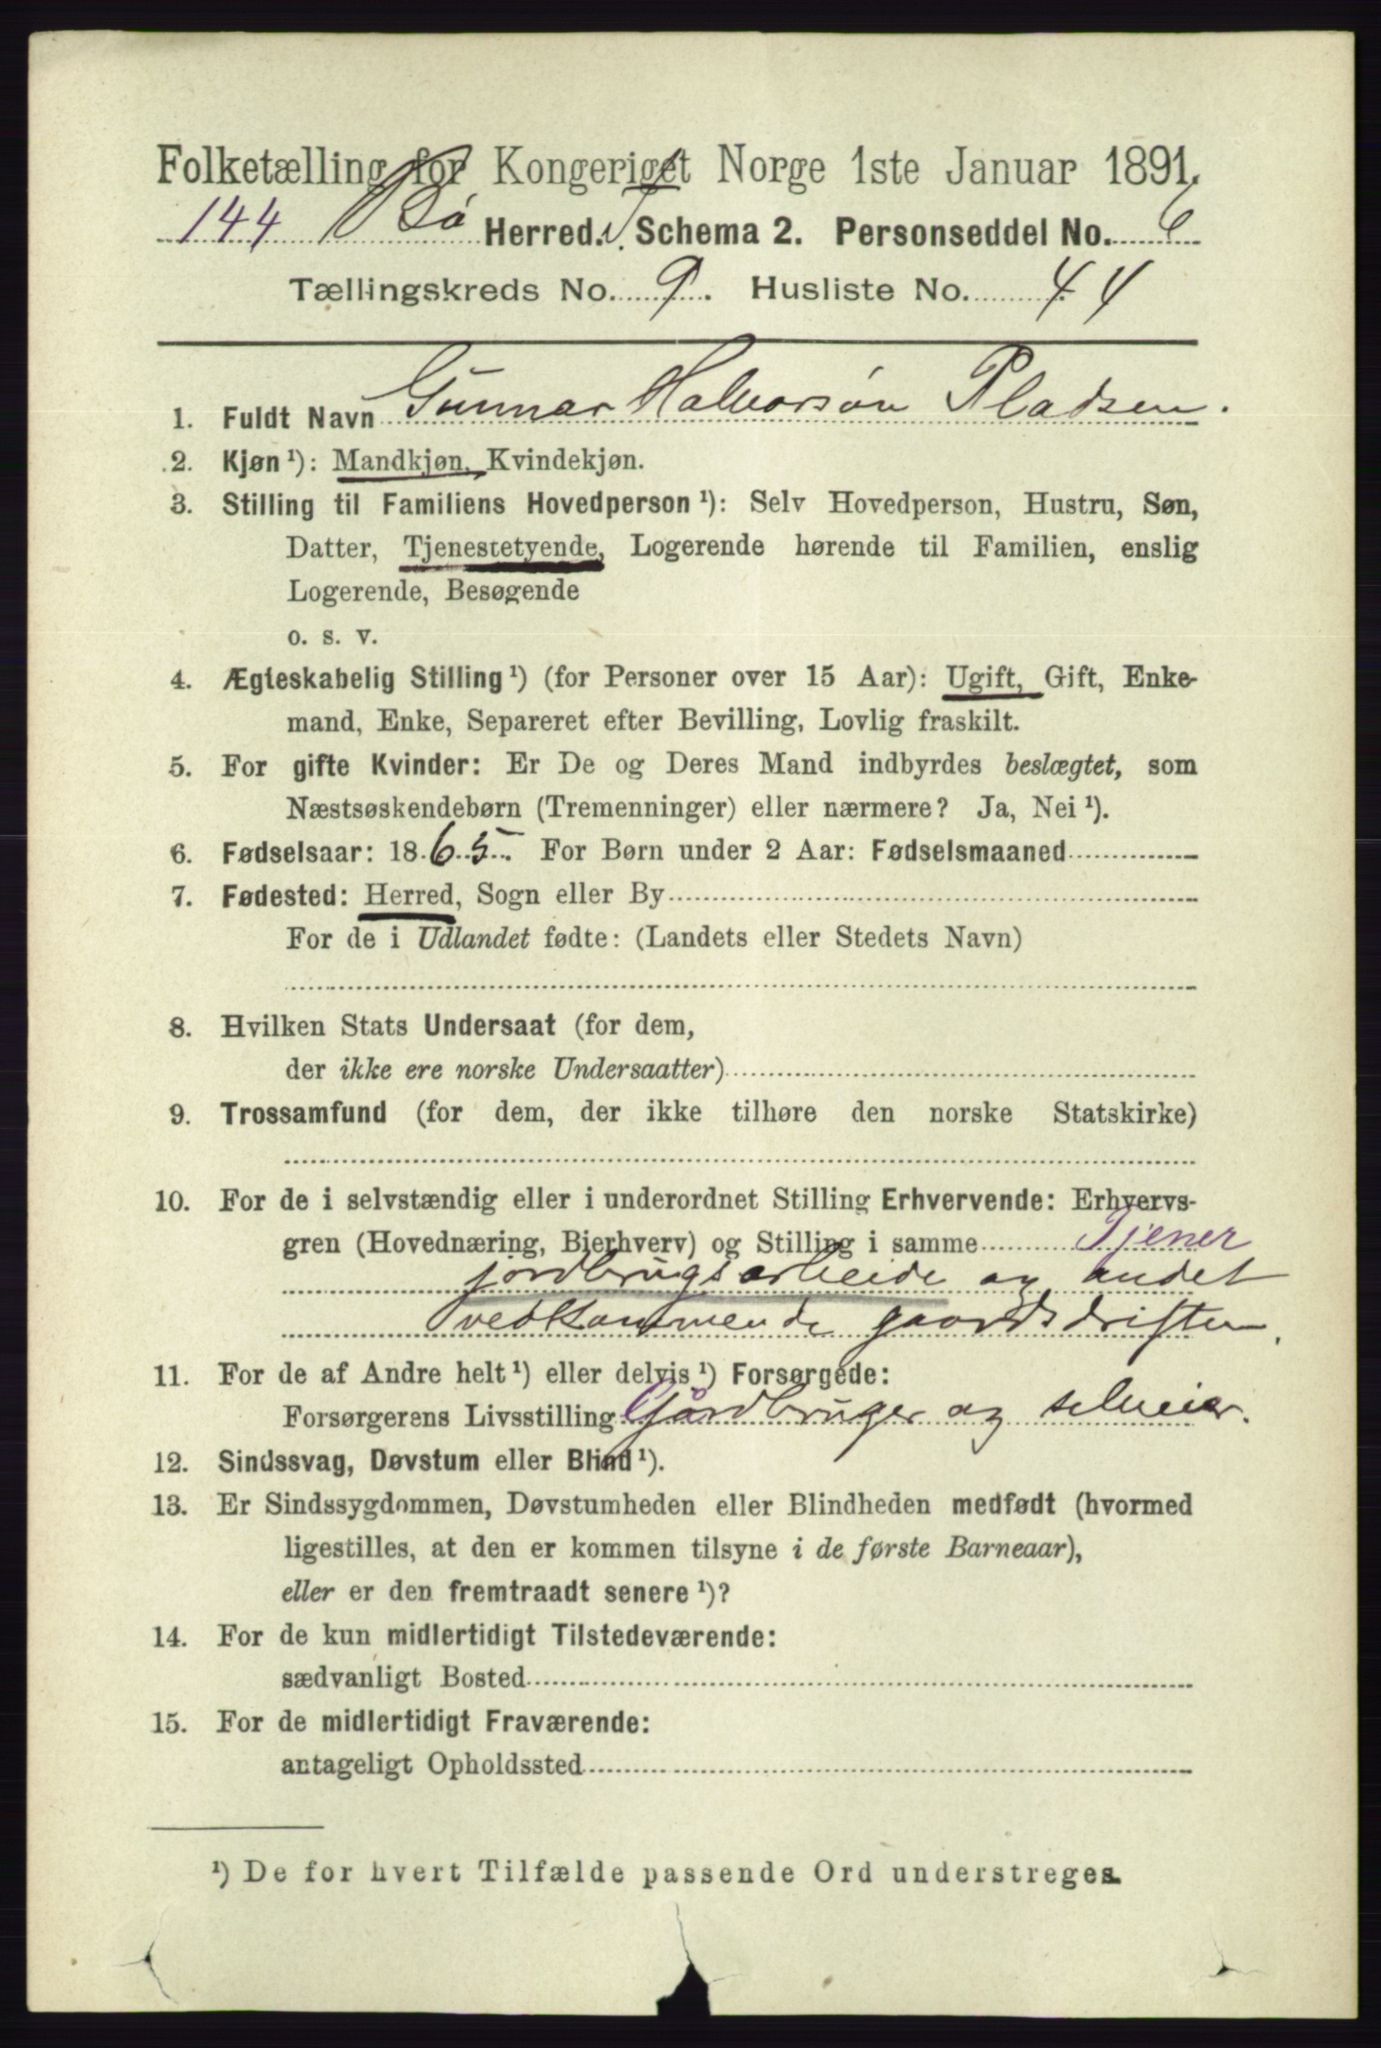 Folketælling for Kongeriget Norge 1ste Januar 1891.
144 Bø Herred. Schema 2. Personseddel No. 6
Tællingskreds No. 9. Husliste No. 44
1. Fuldt Navn Gunnar Halvorsøn Pladsen.
2. Kjøn¹): Mandkjøn, Kvindekjøn.
3. Stilling til Familiens Hovedperson¹): Selv Hovedperson, Hustru, Søn,
Datter, Tjenestetyende, Logerende hørende til Familien, enslig
Logerende, Besøgende
o. s. v.
4. Ægteskabelig Stilling¹) (for Personer over 15 Aar): Ugift, Gift, Enke-
mand, Enke, Separeret efter Bevilling, Lovlig fraskilt.
5. For gifte Kvinder: Er De og Deres Mand indbyrdes beslægtet, som
Næstsøskendebørn (Tremenninger) eller nærmere? Ja, Nei¹).
6. Fødselsaar: 1865. For Børn under 2 Aar: Fødselsmaaned
7. Fødested: Herred, Sogn eller By
For de i Udlandet fødte: (Landets eller Stedets Navn)
8. Hvilken Stats Undersaat (for dem,
der ikke ere norske Undersaatter)
9. Trossamfund (for dem, der ikke tilhøre den norske Statskirke)
10. For de i selvstændig eller i underordnet Stilling Erhvervende: Erhvervs-
gren (Hovednæring, Bierhverv) og Stilling i samme Tjener
jordbrugsarbeide og andet
vedkommende gaardsdriften.
11. For de af Andre helt¹) eller delvis¹) Forsørgede:
Forsørgerens Livsstilling Gårdbruger og selveier.
12. Sindssvag, Døvstum eller Blind¹).
13. Er Sindssygdommen, Døvstumheden eller Blindheden medfødt (hvormed
ligestilles, at den er kommen tilsyne i de første Barneaar),
eller er den fremtraadt senere¹)?
14. For de kun midlertidigt Tilstedeværende:
sædvanligt Bosted
15. For de midlertidigt Fraværende:
antageligt Opholdssted
¹) De for hvert Tilfælde passende Ord understreges.